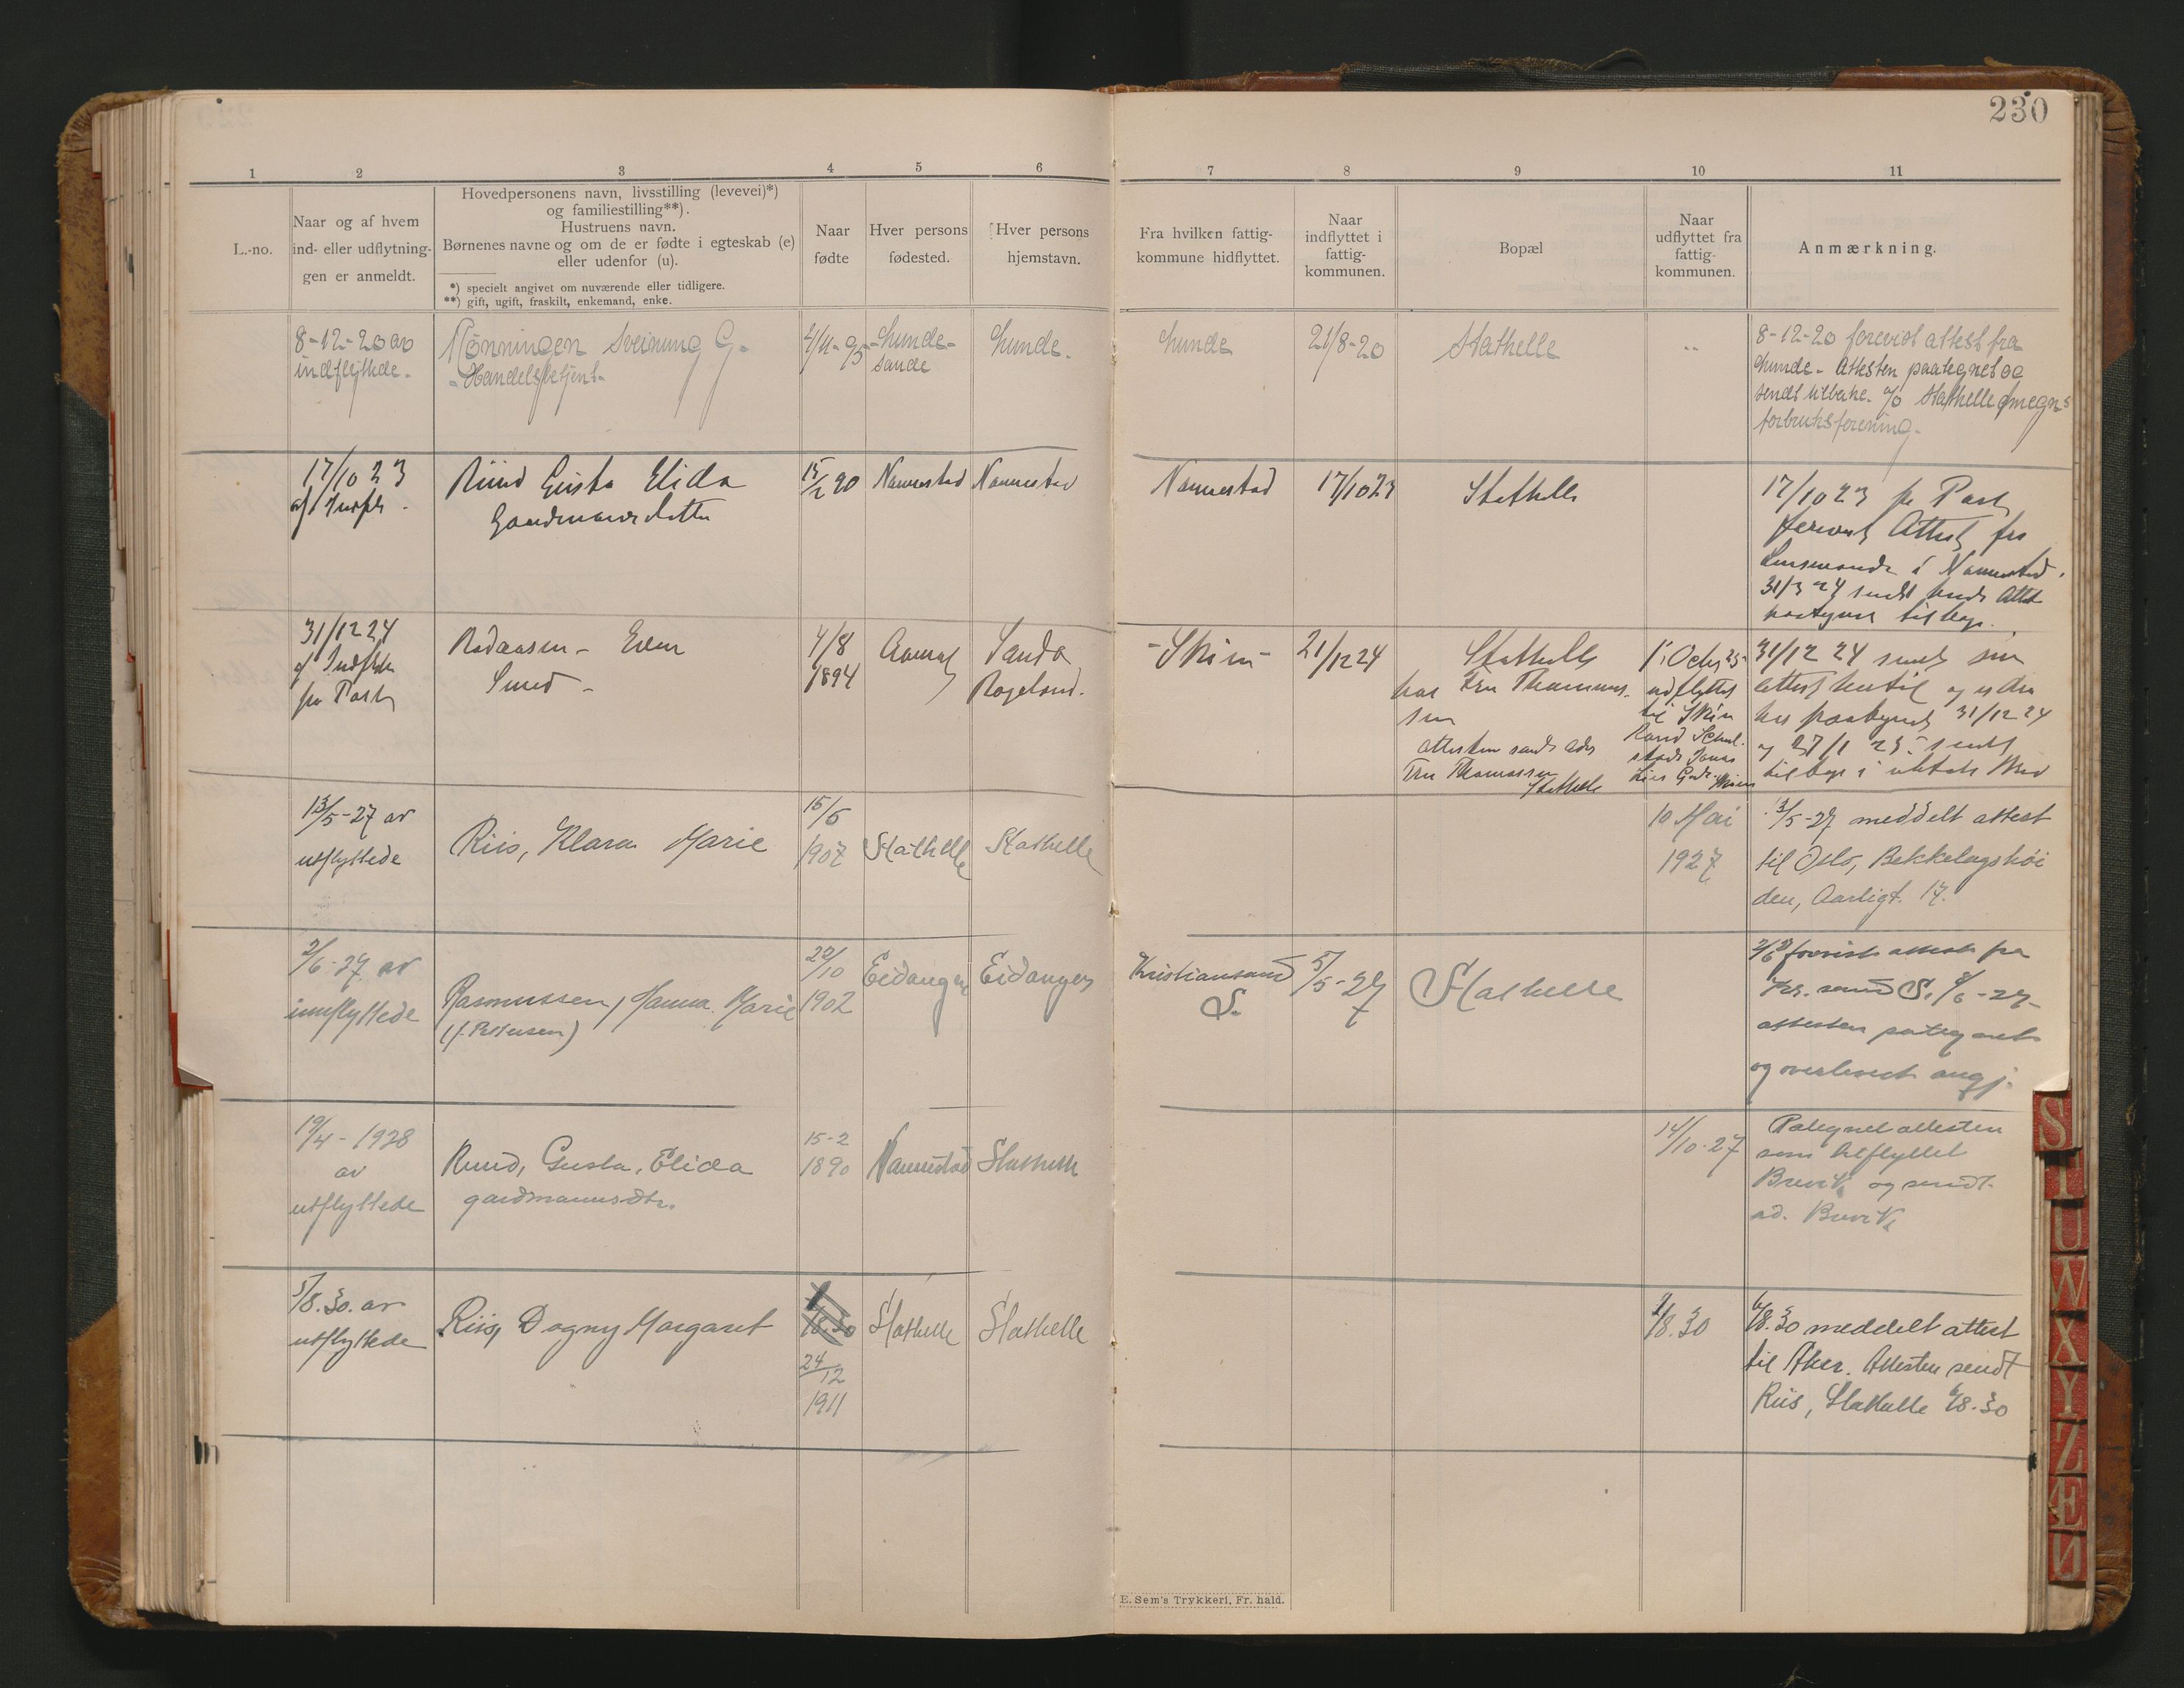 230
1 2 3 4 5 6 7 8 9 10 11
L.-no.
Naar og af hvem
ind- eller udflytnin-
gen er anmeldt.
Hovedpersonens navn, livsstilling (levevei)*)
og familiestilling**).
Hustruens navn.
Børnenes navne og om de er fødte i egteskab (e)
eller udenfor (u).
*) specielt angivet om nuværende eller tidligere.
**) gift, ugift, fraskilt, enkemand, enke.
Naar
fødte
Hver persons
fødested.
Hver persons
hjemstavn.
Fra hvilken fattig-
kommune hidflyttet.
Naar
indflyttet i
fattig-
kommunen.
Bopæl
Naar
udflyttet fra
fattig-
kommunen.
Anmærkning.
8-12-20 av
indflyttede.
Mønningen Sveinung G.
Handelsbetjent
Lunde
21/8-20
Stathelle
8-12-20 forevist attest fra
Lunde. Attesten paategnet og
sendt tilbake. Stathelle omegns
forbruksforening.
17/10 23
Ruud Gusta Elida
Gaardmandsdatter
15/2 90
Nannestad
Nannestad
Nannestad
17/10 23
Stathelle
17/10 23 pr Post
Attest fra
i Nannestad.
31/3 24 sendt
31/12 24
pr Post
Even
Smed
4/8
1894
Rogaland.
Skien
21/12 24
Stathelle
hos Fru Thomas-
sen
attesten sendt adr
Fru Thomassen
Stathelle
udflyttet
til Skien
31/12 24 sendt sin
attest hertil og er den
31/12 24
og 27/1 25 sendt
13/5-27 av
utflyttede
Riis, Klara Marie
15/6
1907
Stathelle
Stathelle
10 Mai
1927
13/5-27 meddelt attest
til Oslo, Bekkelagshøi
den, Aarligt. 17.
2/6-27 av
innflyttede
Rasmussen, Hanna Marie
(f. Pettersen)
22/10
1902
Eidanger
Eidanger
Kristiansand
S.
5/5-27
Stathelle
forevist attest fra
Kr. sand S.
attesten pategnet
og overlevert angj.
19/4-1928
av
utflyttede
Ruud, Gusta, Elida
gardmannsdtr.
15-2
1890
Nannestad
Stathelle
14/10-27
Pategnet attesten
som tilflyttet
Brevik og sendt
ad. Brevik
5/8.30. av
utflyttede
Riis, Dagny Margaret
24/12
1911
Stathelle
Stathelle
1/8.30
6/8.30 meddelt attest
til Aker. Attesten sendt
Riis, Stathelle 6/8.30
E. Sem's Trykkeri, Fr. hald.
S
T
U
W
X
Y
Z
Æ